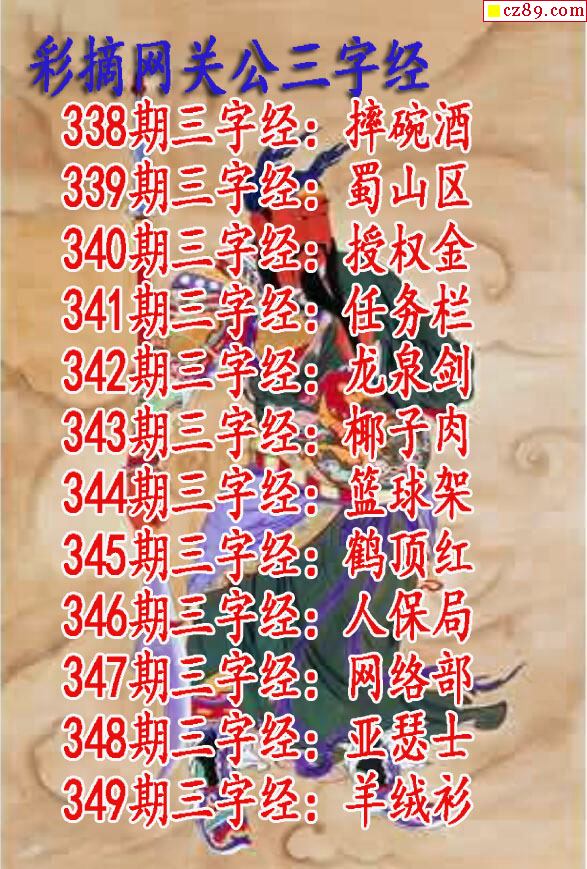 cz89.com
彩摘网关公三字经
338期三字经：摔碗酒
339期三字经：蜀山区
340期三字经：授权金
341期三字经：任务栏
342期三字经：龙泉剑
343期三字经：椰子肉
344期三字经：篮球架
345期三字经：鹤顶红
346期三字经：人保局
347期三字经：网络部
348期三字经：亚瑟士
349期三字经：羊绒衫